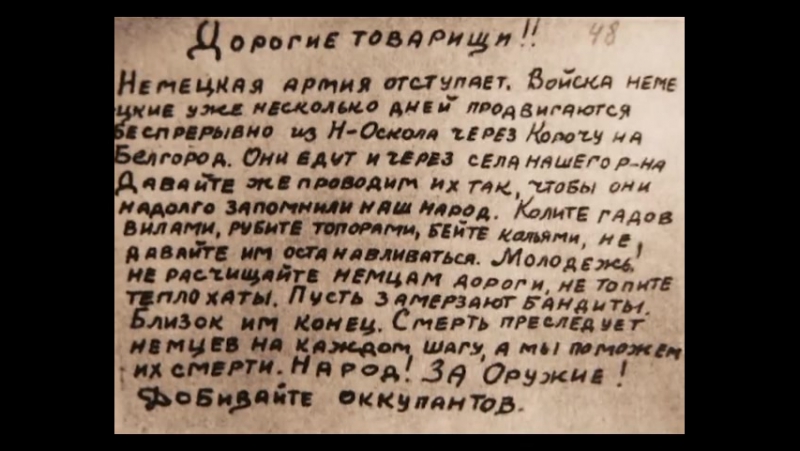 Дорогие товарищи!! 48
Немецкая армия отступает. Войска неме
цкие уже несколько дней продвигаются
беспрерывно из Н-Оскола через Корочу на
Белгород. Они едут и через села нашего р-на
Давайте же проводим их так, чтобы они
надолго запомнили наш народ. Колите гадов
вилами, рубите топорами, бейте кольями, не
давайте им останавливаться. Молодежь!
не расчищайте немцам дороги, не топите
тепло хаты. Пусть замерзают бандиты.
Близок им конец. Смерть преследует
немцев на каждом шагу, а мы поможем
их смерти. Народ! За Оружие!
Добивайте оккупантов.